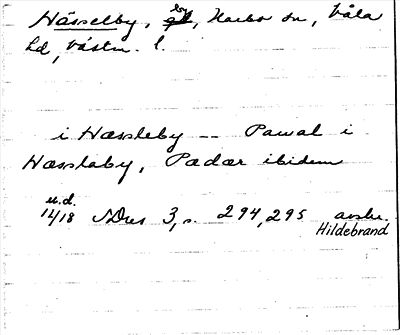 Hässelby, by, Harbo sn, Våla
hd, Västm. l.
i Hæssleby -- Pawal i
Hæsslaby, Pædær ibidem
u.d.
14/18 NDus 3, s. 294, 295 avskr.
Hildebrand